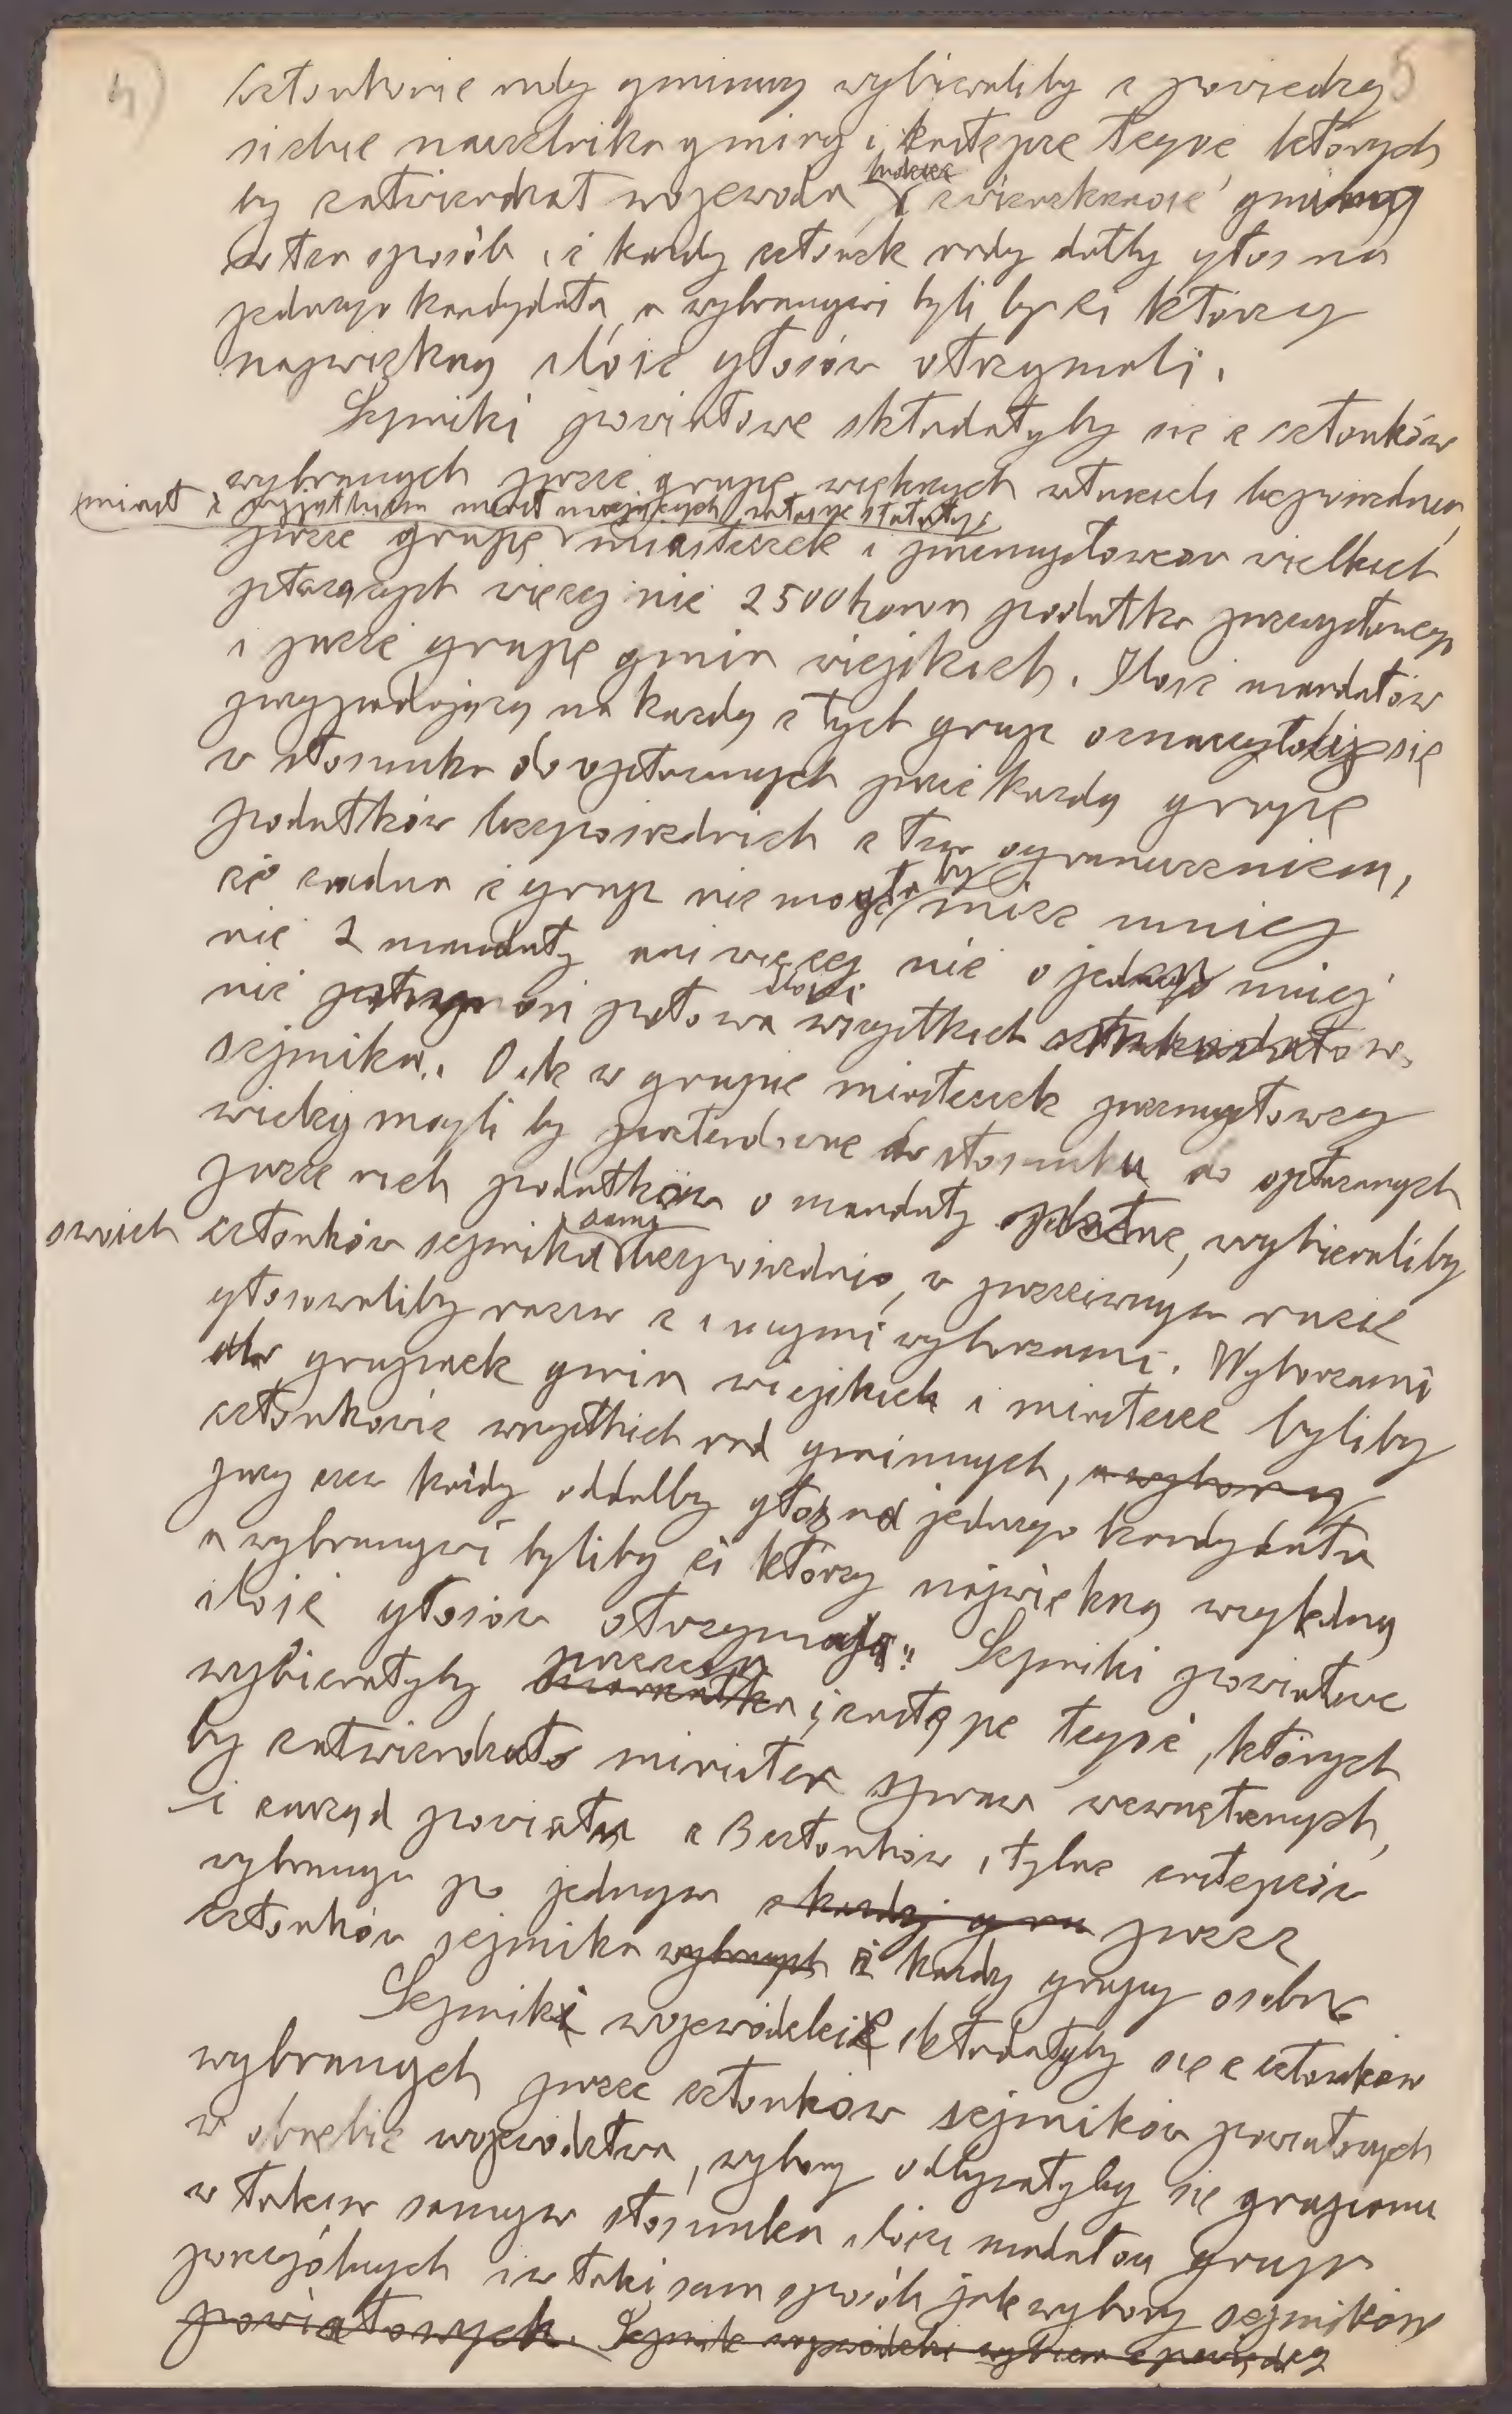 4) 5
członkowie rady gminny wybieraliby z powiedzy
siebie naczelnika gminy i zastępcę tegoż, których
by zatwierdzał wojewoda, zwierzchność gminną
w ten sposób, iż każdy członek rady dałby głos na
jednego kandydata, a wybranymi byli by ci którzy
największą ilość głosów otrzymali.
Sejmiki powiatowe składałyby się z członków
wybranych przez grupę większych własności bezpośrednio,
miast z wyjątkiem miast mających własne statuty,
przez grupę miasteczek i przemysłowców wielkich
płacących więcej niż 2500 koron podatku przemysłowego
i przez grupę gmin wiejskich. Ilość mandatów
przypadający na każdą z tych grup oznaczyłoby się
w stosunku do opłacanych przez każdą grupę
podatków bezpośrednich z tem ograniczeniem,
że żadna z grup nie mogła by mieć mniej
niż 2 mandaty ani więcej niż o jeden mniej
niż połowa ilości wszystkich mandatów
sejmiku. O ile w grupie miasteczek przemysłowcy
wielcy mogli by pretendować w stosunku do opłacanych
przez nich podatków o mandaty, wybieraliby
swoich członków sejmiku sami bezpośrednio, w przeciwnym razie
głosowaliby razem z innymi wyborcami. Wyborcami
dla grup gmin wiejskich i miasteczek byliby
członkowie wszystkich rad gminnych, a wybory
przy czem każdy oddałby głos na jednego kandydata
a wybranymi byliby ci którzy największą względną
ilość głosów otrzymają. Sejmiki powiatowe
wybierałyby prezesa marszałka i zastępcę tegoż, których
by zatwierdzał minister spraw wewnętrznych,
i zarząd powiatu z 3 członków, i tyluż zastępców
wybranych po jednym z każdej gru przez
członków sejmiku wybranych z każdej grupy osobno
Sejmiki wojewódzkie składałyby się z członków
wybranych przez członków sejmików powiatowych
w obrębie województwa, wybory odbywałyby się grupami
w takim samym stosunku ilości mandatów grup
poszczególnych i w taki sam sposób jak wybory sejmików
powiatowych. Sejmik wojewódzki wybiera z pomiędzy